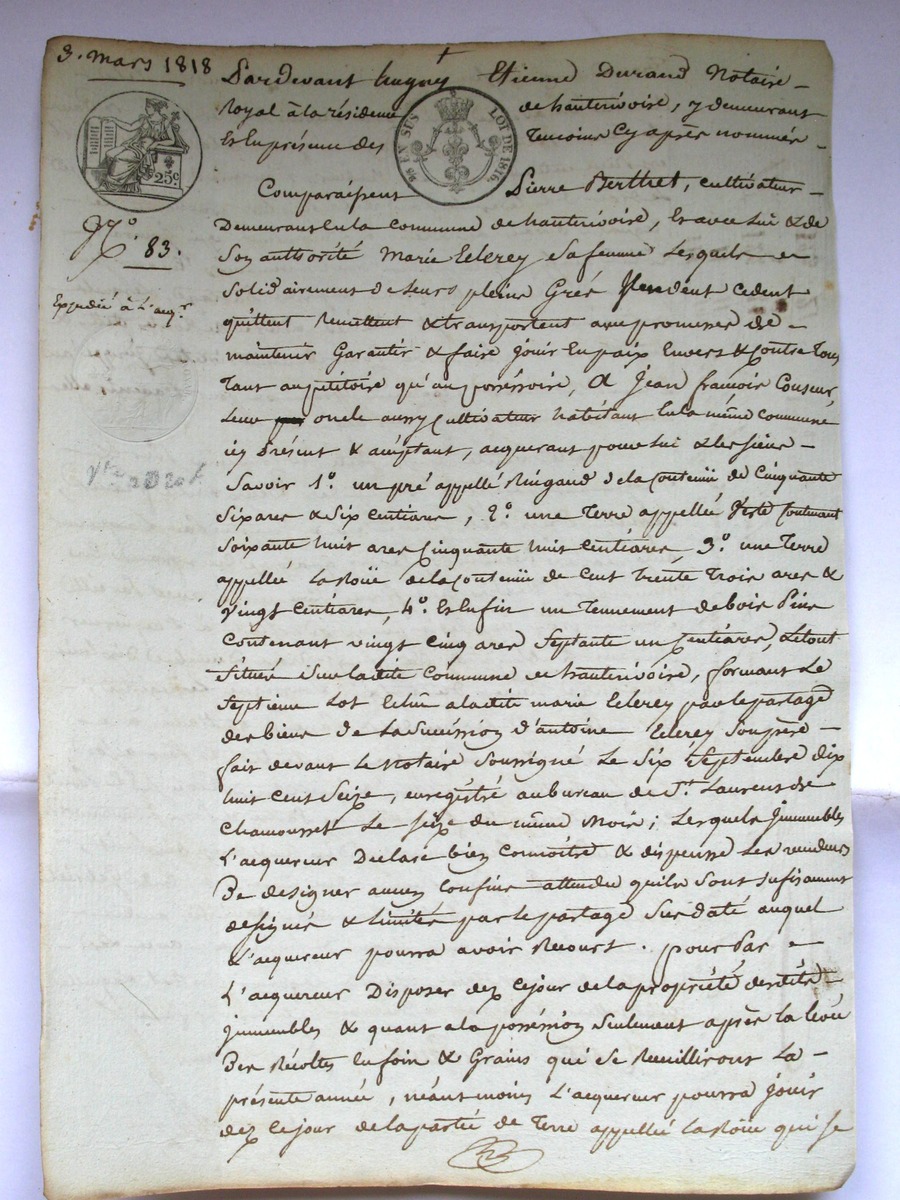 3. mars 1818
Pardevant hugues Etienne Durand Notaire
Royal à la résidence de hauterivoire, y demeurant
Et En présence des Temoins Cy après nommés
98 EN SUS
LOI DE 1816.
25c
Comparaissent Pierre Berthet, cultivateur
Demeurant En la Commune de hauterivoire, Et avec lui & de
Son authorité Marie sa femme Lesquels
Solidairement de leurs pleins Grés Vendent cedent
quittent Remettent & transportent avec promesse de
maintenir Garantir & faire jouir En paix Envers & Contre tous
Tant au petitoire qu'au posséssoire, A jean francois Couseur,
Leur oncle aussy Cultivateur habitant En la même commune
icy Présent & acceptant, acquerant pour lui & les siens
Savoir 1º. un pré appellé Ringaud de la Contenüe de Cinquante
Six ares & Six Centiares, 2º. une Terre appellée Contenant
Soixante huit ares Cinquante huit Centiares 3º. une Terre
appellée La Roüe de la Contenüe de Cent trente trois ares &
Vingt Centiares, 4º. Et Enfin un Tennement de bois Pins
Contenant vingt cinq ares Septante un Centiares, Le tout
Situé Sur la dite Commune de hauterivoire, formant Le
Septieme Lot Echu a la dite marie par le partage
des biens de La Succéssion d'antoine Son père
fait devant Le Notaire Soussigné Le Six Septembre dix
huit cent Seize, enregistré au bureau de St. Laurent de
Chamousset Le Seize du même Mois; Lesquels Immeubles
L'acquereur Declare bien Connoitre & dispense Les vendeurs
De designer aucuns Confins attendu quils sont sufisament
designés & Limités par le partage Sus daté auquel
L'acquereur pourra avoir Recourt. pour Par
L'acquereur Disposer dez ce jour de la propriété desdits
jmmeubles & quant a la posséssion Seulement après la levée
Des Récoltes En foin & Grains qui se Recuilliront La
présente année, néant moins L'acquereur pourra jouir
dez ce jour de la partie de Terre appellée La Roüe qui se
Nº. 83.
Expedié à L'acqr.